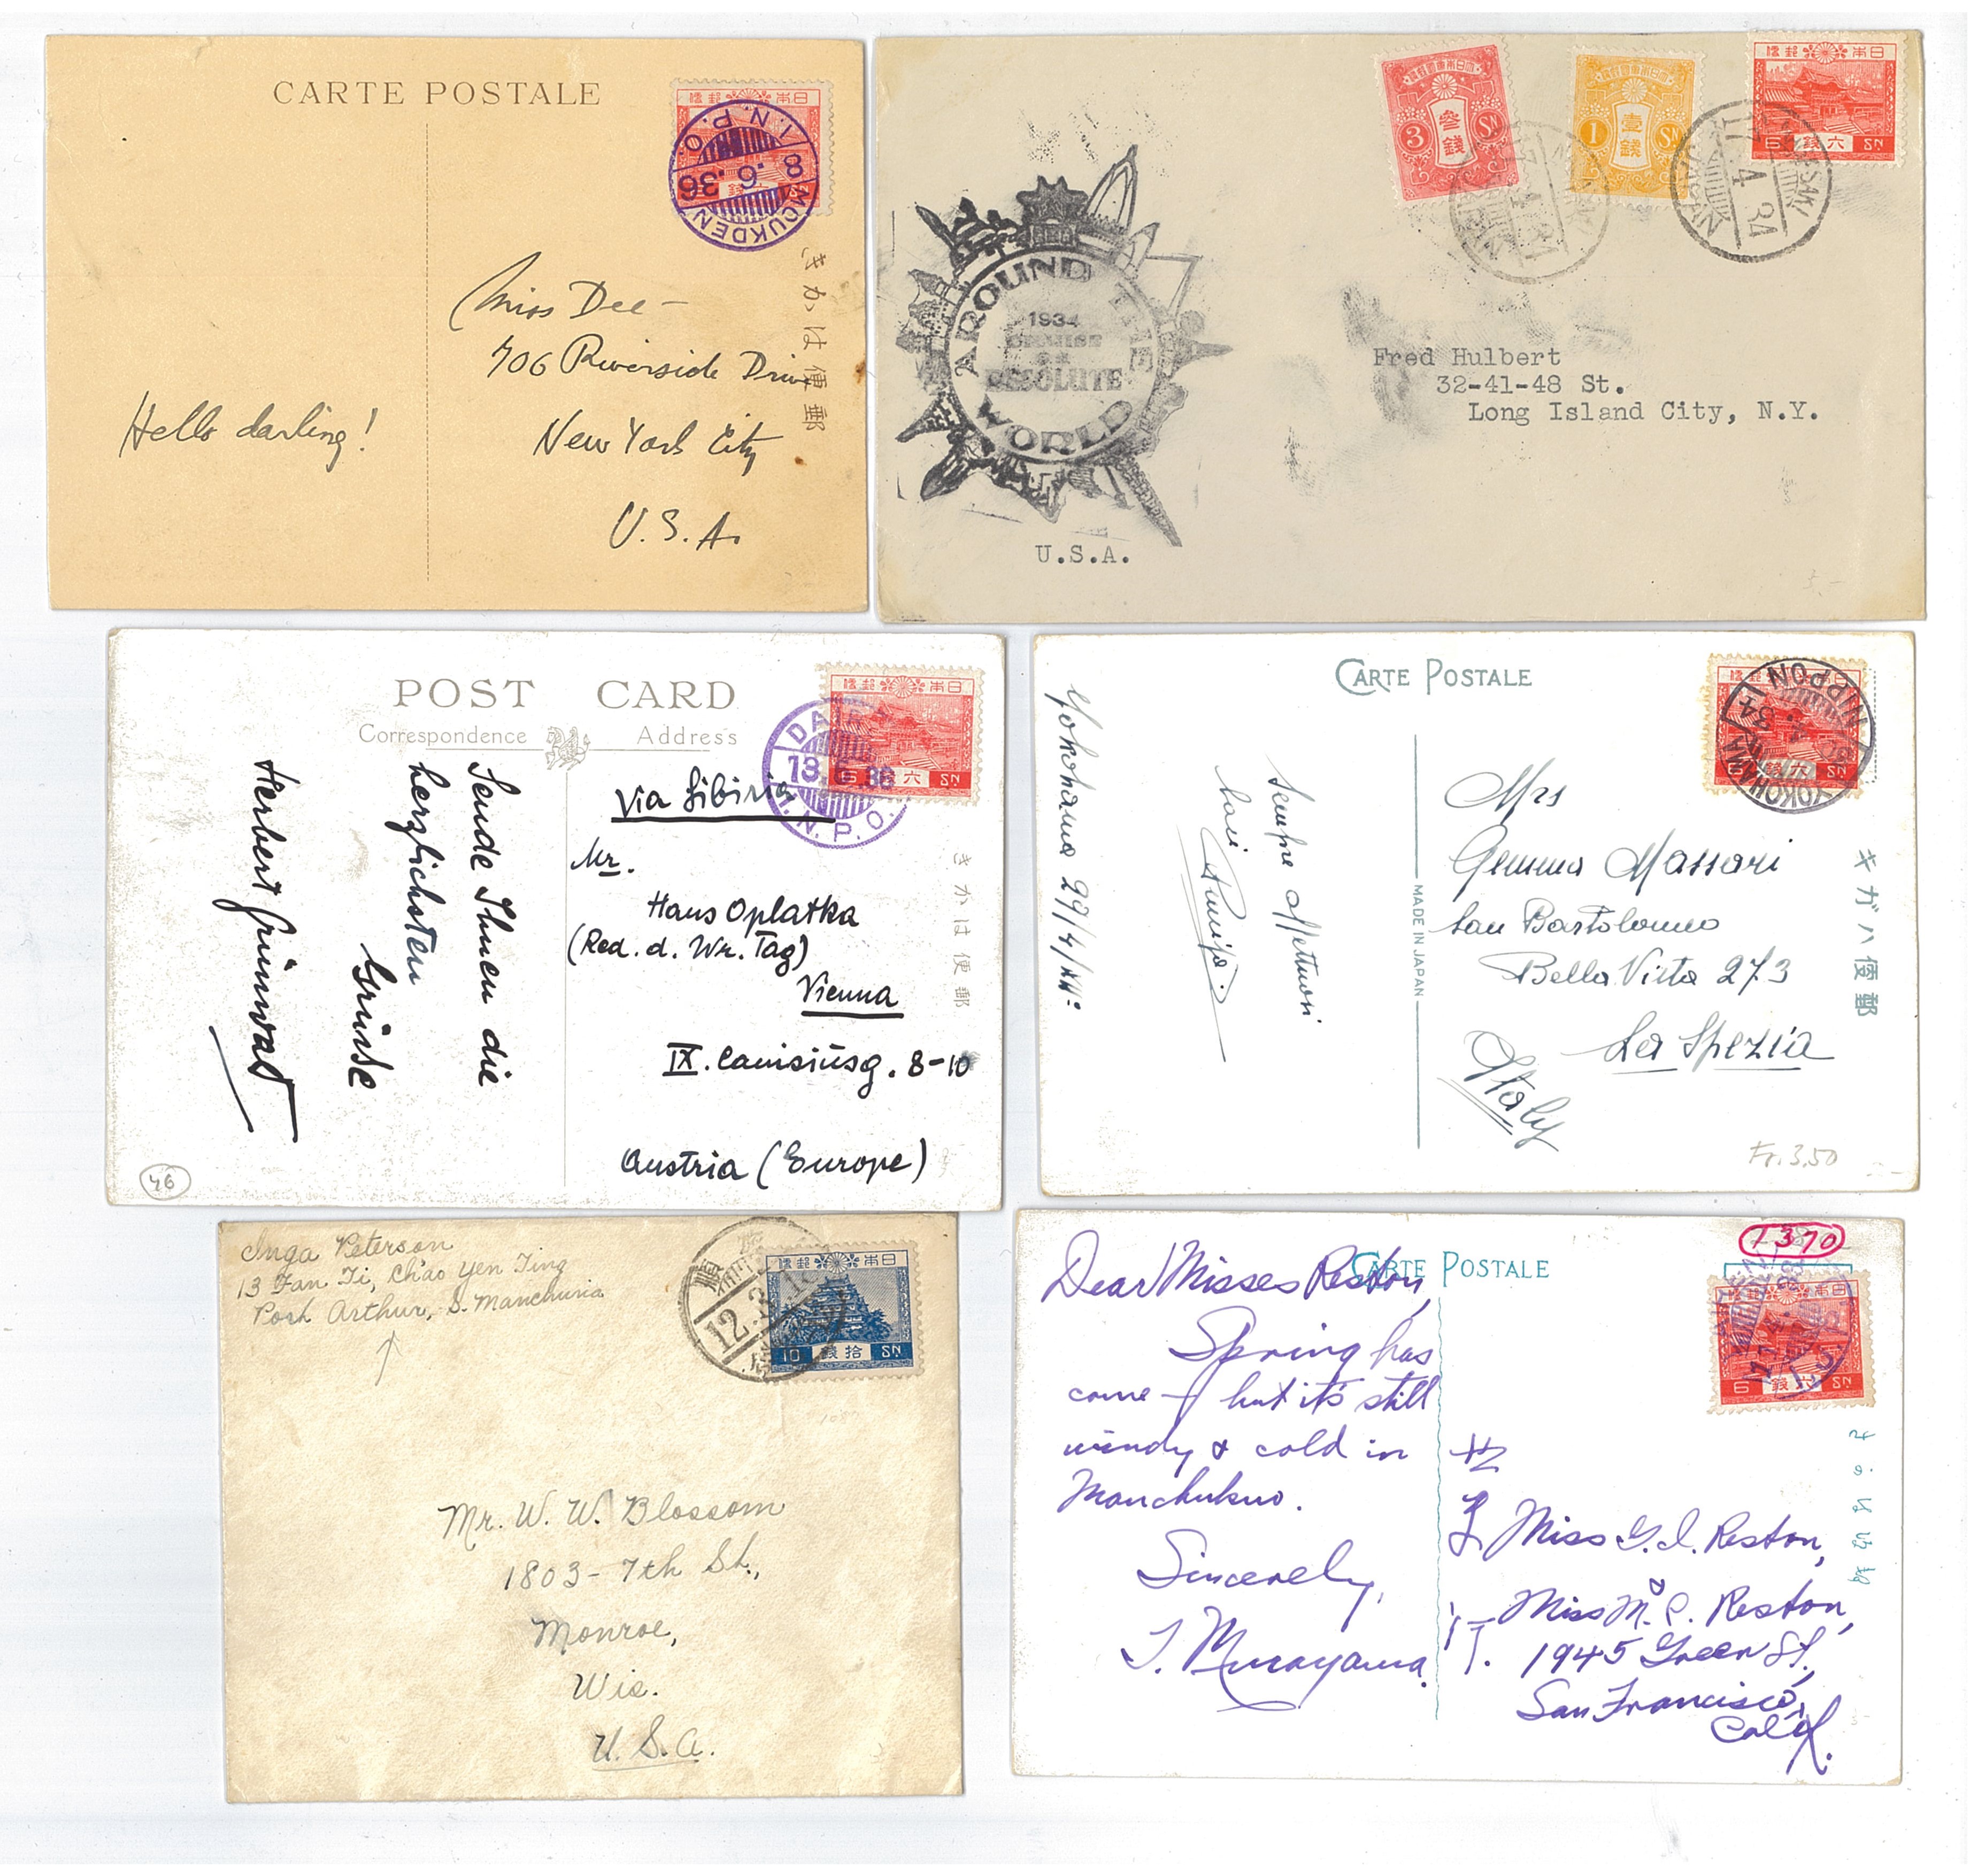 CARTE POSTALE
日本郵便
六銭
SN
MOUKDEN
8.6.36
I.N.P.O.
きかは便郵
Miss Dee –
706 Riverside Drive
New York City
U.S.A.
Hello darling!
3 参銭 SN
1 壹銭 SN
日本郵便
6 六銭 SN
NAGASAKI
17.4.34
AROUND THE WORLD
1934
CRUISE
RESOLUTE
Fred Hulbert
32-41-48 St.
Long Island City, N.Y.
U.S.A.
POST CARD
Correspondence
Address
日本郵便
6 六 SN
36
I.N.P.O.
きかは便郵
Via Sibiria
Mr.
Hans Oplatka
(Red. d. Wr. Tag)
Vienna
IX. Canisiusg. 8-10
Austria (Europe)
Sende Ihnen die
herzlichsten
Grüsse
Herbert Grünwald
46
CARTE POSTALE
日本郵便
六銭 SN
YOKOHAMA
NIPPON
34
キガハ便郵
MADE IN JAPAN
Yokohama 29/4/XII:
Mrs
Gemma Massari
San Bartolomeo
Bella Vista 273
La Spezia
Italy
Fr. 3.50
Inga Peterson
13 Fan Ti, Ch'ao Yen Ting
Port Arthur, S. Manchuria
日本郵便
10 拾銭 SN
12.3
Mr. W. W. Blossom
1803 - 7th St.,
Monroe,
Wis.
U.S.A.
CARTE POSTALE
1370
日本郵便
6 六銭 SN
Dear Misses Reston,
Spring has
come – but it's still
windy & cold in
Manchukuo.
Sincerely,
T. Murayama.
Miss G. I. Reston,
Miss M. C. Reston,
1945 Green St.,
San Francisco,
Calif.